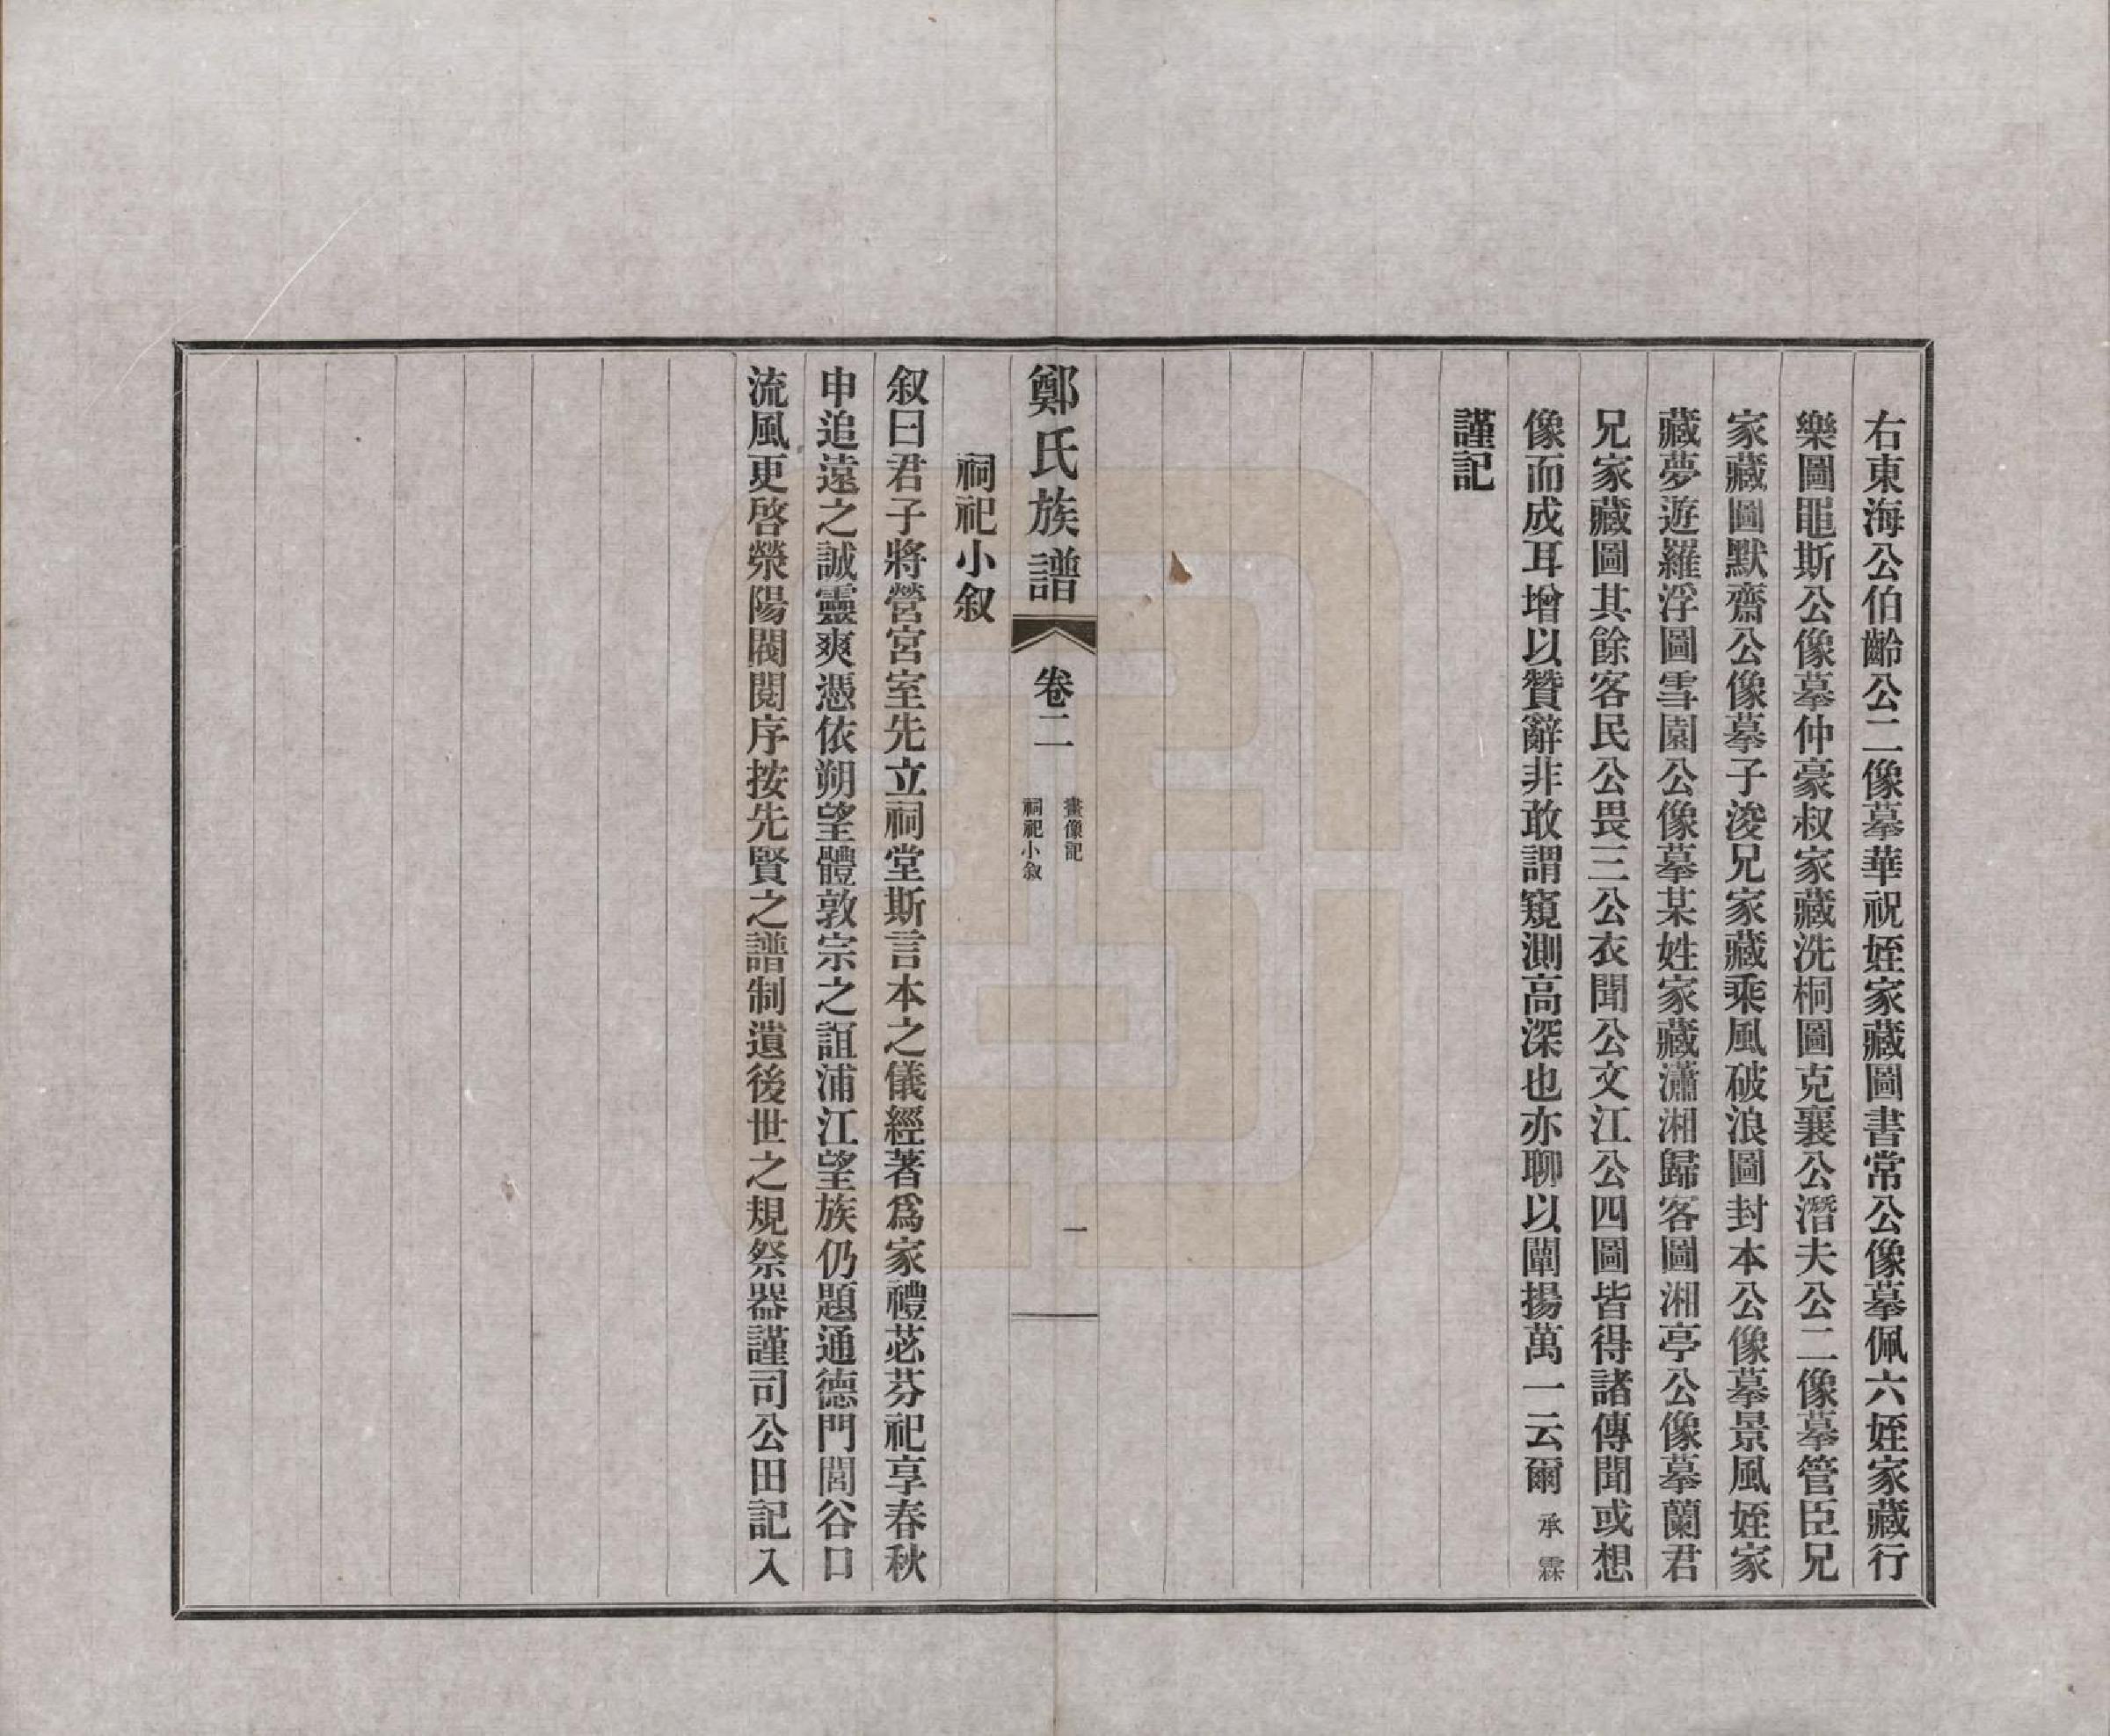 右東海公伯齡公二像摹華祝姪家藏圖書常公像摹佩六姪家藏行
樂圖黽斯公像摹仲豪叔家藏洗桐圖克襄公潛夫公二像摹管臣兄
家藏圖默齋公像摹子浚兄家藏乘風破浪圖封本公像摹景風姪家
藏夢遊羅浮圖雪園公像摹某姓家藏瀟湘歸客圖湘亭公像摹蘭君
兄家藏圖其餘客民公畏三公衣聞公文江公四圖皆得諸傳聞或想
像而成耳增以贊辭非敢謂窺測高深也亦聊以闡揚萬一云爾承霖
謹記
鄭氏族譜 卷二 畫像記 祠祀小叙 一
祠祀小叙
叙曰君子將營宮室先立祠堂斯言本之儀經著爲家禮苾芬祀享春秋
申追遠之誠靈爽憑依朔望體敦宗之誼浦江望族仍題通德門閭谷口
流風更啓滎陽閥閱序按先賢之譜制遺後世之規祭器謹司公田記入